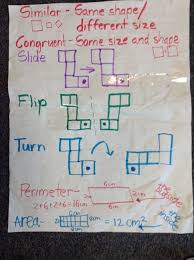 Similar - Same shape/
different size
Congruent - Same size and shape
Slide
Flip
Turn
Perimeter - 6cm 2cm
2+6+2+6=16cm 6cm
Area - = 12 cm²